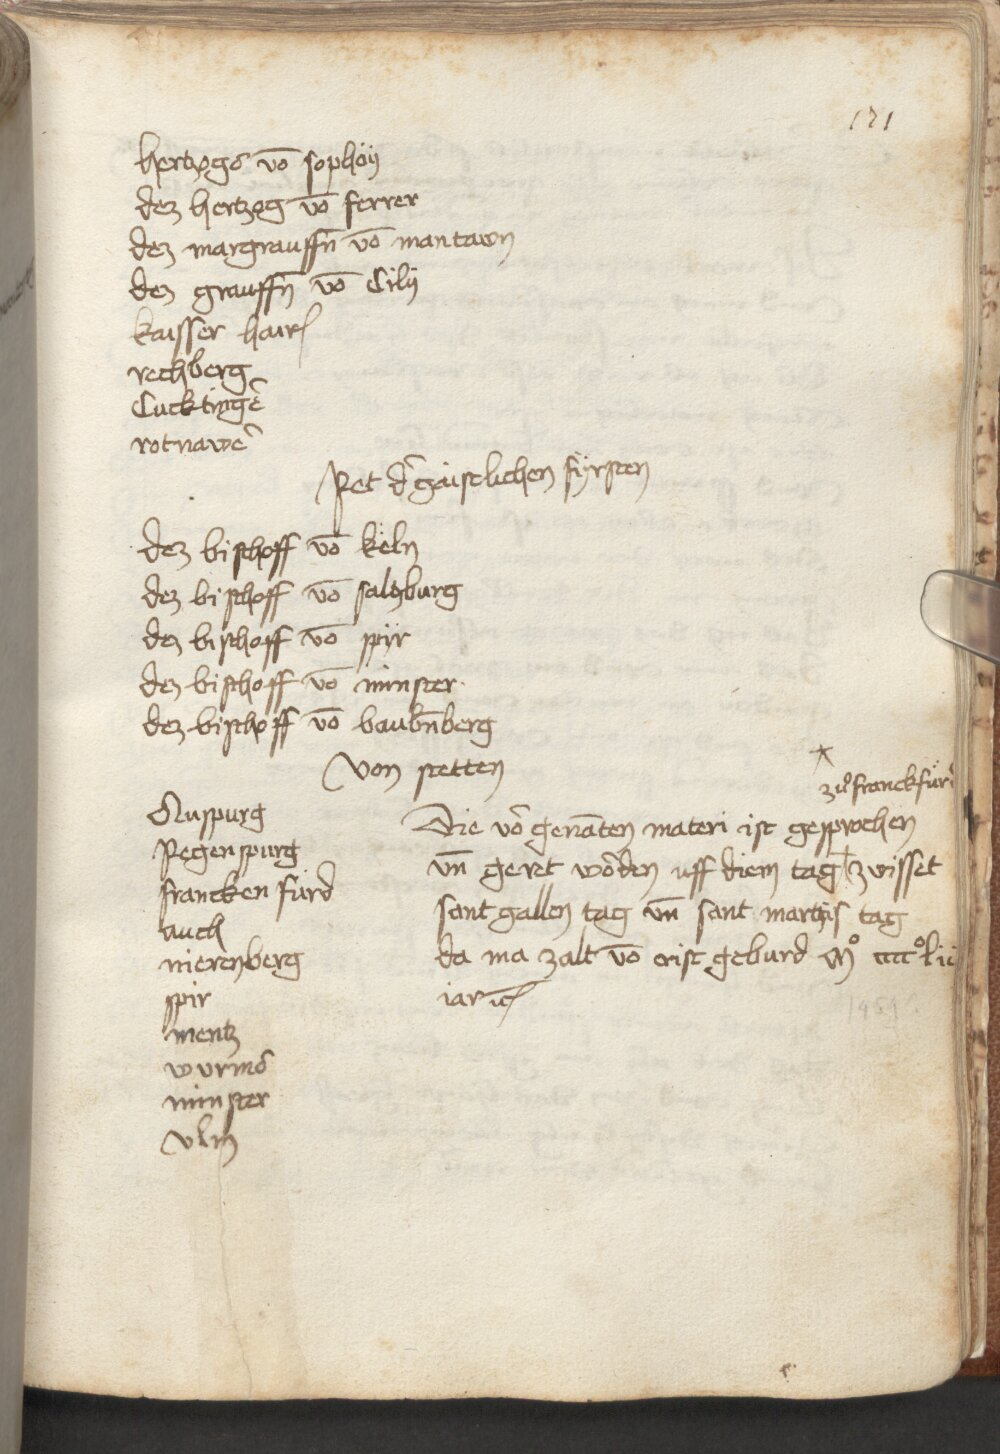 171
hertzogs vō sophöÿ
dez hertzog vō ferrer
dez margrauffn̄ vō mantawn
dez grauffn̄ vō Cilÿ
kaisser hair
rechberg
Lucktingē
rotnawē
Ret d̕ gaistlichen fÿrsten
dez bischoff vō kёln
dez bischoff vō saltzburg
dez bischoff vō spÿr
dez bischoff vō minster
dez bischoff vō baubn̄berg
Von stetten
zuͦ franckfürd
Auspurg
Regenspurg
francken fürd
auch
nierenberg
spir
mentz
wurms
minster
vlm
Die vō genāten materi ist gesprochen
vn̄ geret wōden uff diem tag zwisset
sant gallen tag vn̄ sant martis tag
da ma zalt vō crist geburd Mͦ ccccͦ lii
iar